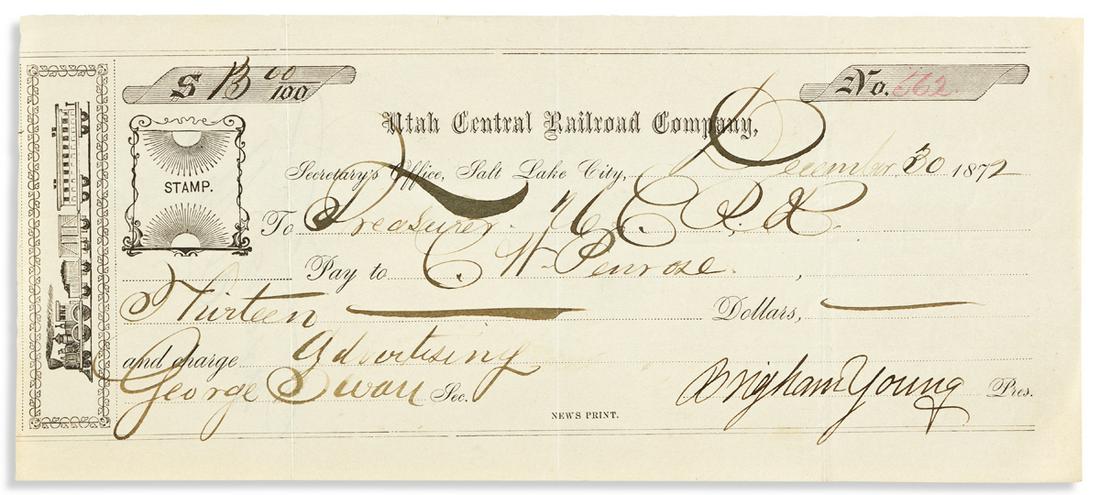 $ 13 00/100
No. 562
Utah Central Railroad Company,
Secretary's Office, Salt Lake City, December 30 1872
STAMP.
To Treasurer U. C. R. R.
Pay to C. W. Penrose.,
Thirteen Dollars,
and charge Advertising
George Swan Sec. Brigham Young Pres.
NEWS PRINT.